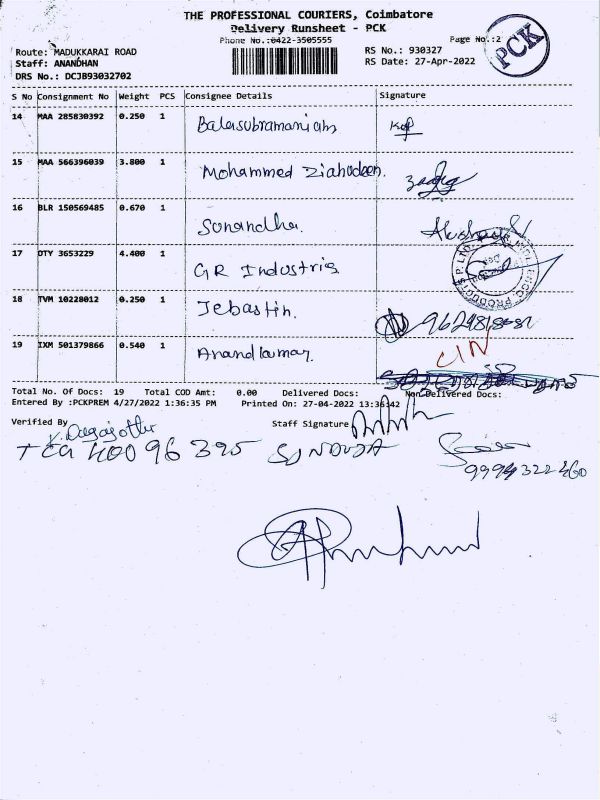 THE PROFESSIONAL COURIERS, Coimbatore
Delivery Runsheet - PCK
Phone No.:0422-3505555
Page No.:2
PCK
Route: MADUKKARAI ROAD
Staff: ANANDHAN
DRS No.: DCJ893032702
RS No.: 930327
RS Date: 27-Apr-2022
S No Consignment No Weight PCS Consignee Details Signature
14 MAA 285830392 0.250 1 Balasubramaniam
15 MAA 566396039 3.800 1 Mohammed Ziahudeen.
16 BLR 150569485 0.670 1 Sunandha.
17 OTY 3653229 4.400 1 GR Industris
18 TVM 10228012 0.250 1 Jebastin.
19 IXM 501379866 0.540 1 Anandkumar.
Total No. Of Docs: 19 Total COD Amt: 0.00 Delivered Docs: Non Delivered Docs:
Entered By :PCKPREM 4/27/2022 1:36:35 PM Printed On: 27-04-2022 13:36:42
Verified By Staff Signature
40096 395
9994322460